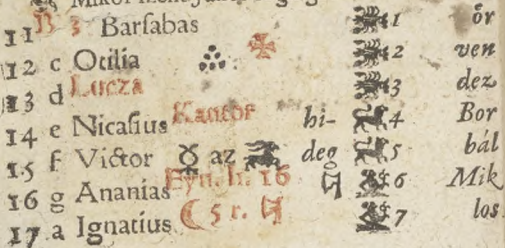 11 B 3 Barsabas 1 ör
12 c Otilia 2 ven
13 d Lucza 3 dez
14 e Nicasius Kantor hi- 4 Bor
15 f Victor ♉ az deg 5 bál
16 g Ananias Eyn. h. 16 ♑ 6 Mik
17 a Ignatius ☾ 5 r. ♑ 7 los